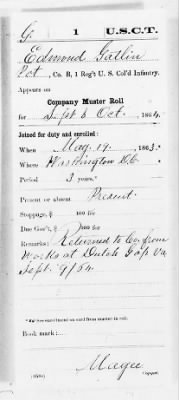 G 1 U.S.C.T.
Edmond Gatlin
Pvt., Co. B, 1 Reg't U. S. Col'd Infantry.
Appears on
Company Muster Roll
for Sept & Oct, 1864.
Joined for duty and enrolled:
When May 19, 1863.
Where Washington D.C.
Period 3 years.*
Present or absent Present.
Stoppage, $ 100 for
Due Gov't, $ 100 for
Remarks: Returned to Co. from
works at Dutch Gap Va
Sept. 9/64.
*See enrollment on card from muster-in roll.
Book mark:
Magee
Copyist.